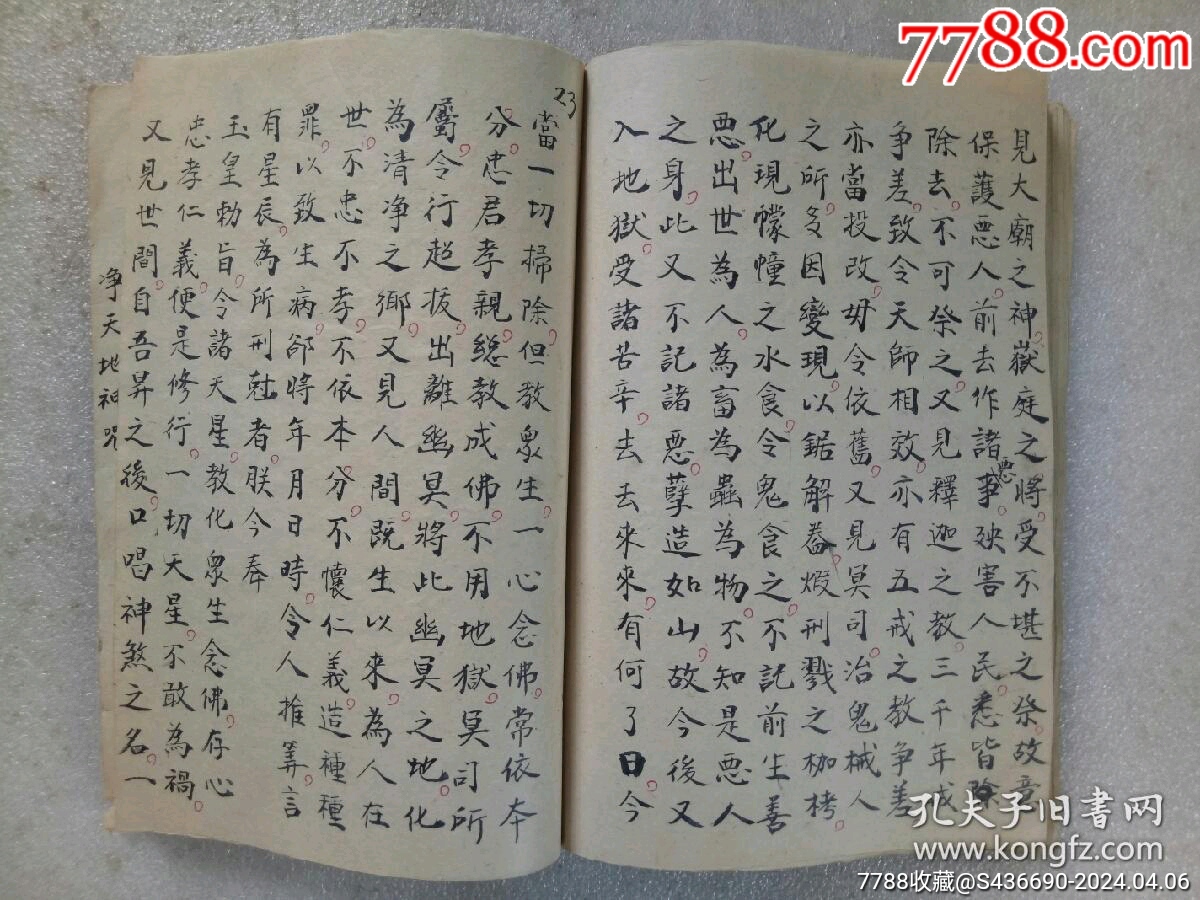 7788.com
見大廟之神。嶽庭之將。受不堪之祭。故竟
保護惡人。前去作諸惡事。殃害人民。悉皆除
除去。不可祭之。又見釋迦之教。三千年成
争差。致令天師相效。亦有五戒之教争差
亦當投改。毋令依舊。又見冥司。治鬼械人
之所。多因變現。以鋸解磨煅刑戮之枷栲。
化現幪幢之水食。令鬼食之。不記前生善
惡。出世為人。為畜為蟲為物。不知是惡人
之身。此又不記諸惡。孽造如山。故今後又
入地獄。受諸苦辛。去去來來。有何了日。今
23
當一切掃除。但教衆生。一心念佛。常依本
分。忠君孝親。總教成佛。不用地獄。冥司所
屬。令行超拔。出離幽冥。將此幽冥之地。化
為清净之鄉。又見人間。既生以來。為人在
世。不忠不孝。不依本分。不懷仁義。造種種
罪。以致生病。卻將年月日時。令人推筭。言
有星辰。為所刑尅者。朕今奉
玉皇勅旨。令諸天星。教化衆生念佛。存心
忠孝仁義。便是修行。一切天星。不敢為禍。
又見世間。自吾昇之後。口唱神煞之名。一
净天地神咒
孔夫子旧書网
www.kongfz.com
7788收藏@S436690-2024.04.06